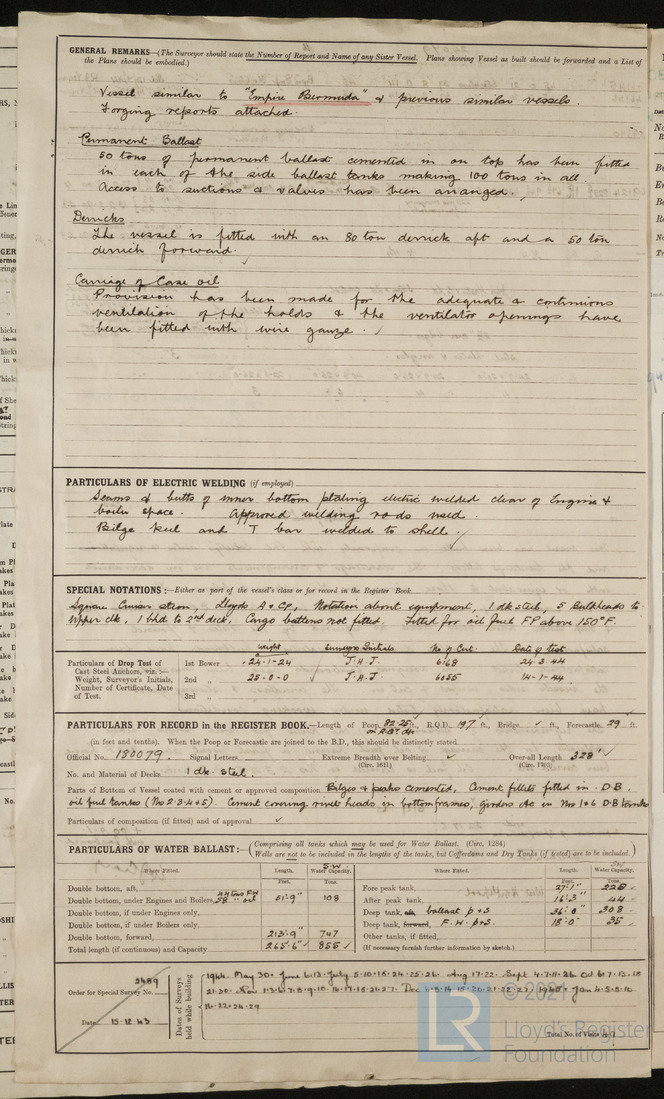 GENERAL REMARKS—(The Surveyor should state the Number of Report and Name of any Sister Vessel. Plans showing Vessel as built should be forwarded and a List of
the Plans should be embodied.)
Vessel similar to "Empire Bermuda" & previous similar vessels.
Forging reports attached.
Permanent Ballast
50 tons of permanent ballast cemented in on top has been fitted
in each of the side ballast tanks making 100 tons in all.
Access to suctions & valves has been arranged.
Derricks
The vessel is fitted with an 80 ton derrick aft and a 50 ton
derrick forward.
Carriage of Case oil
Provision has been made for the adequate & continuous
ventilation of the holds & the ventilator openings have
been fitted with wire gauze.
PARTICULARS OF ELECTRIC WELDING (if employed)
Seams & butts of inner bottom plating electric welded clear of Engine &
boiler space. Approved welding rods used.
Bilge keel and T bar welded to shell.
SPECIAL NOTATIONS:—Either as part of the vessel's class or for record in the Register Book.
Square Cruiser stern, Lloyds A & CP, Notation about equipment, 1 dk steel, 5 Bulkheads to
Upper dk, 1 bhd to 2nd deck, Cargo battens not fitted. Fitted for oil fuel FP above 150°F.
Weight Surveyor's Initials No of Cert. Date of test
Particulars of Drop Test of 1st Bower 24-1-24 J.A.J. 6168 24-3-44
Cast Steel Anchors, viz.:—
Weight, Surveyor's Initials, 2nd „ 25-0-0 J.A.J. 6055 14-1-44
Number of Certificate, Date
of Test. 3rd „
PARTICULARS FOR RECORD in the REGISTER BOOK.—Length of Poop 82.25 ft., R.Q.D. 197 ft., Bridge ft., Forecastle 29 ft.
(in feet and tenths). When the Poop or Forecastle are joined to the B.D., this should be distinctly stated
Official No. 180079. Signal Letters Extreme Breadth over Belting Over-all Length 328'
(Circ. 1611) (Circ. 1703)
No. and Material of Decks 1 dk. steel.
Parts of Bottom of Vessel coated with cement or approved composition Bilges & peaks cemented, Cement fillets fitted in D.B.
oil fuel tanks (Nos 2.3.4 & 5). Cement covering rivet heads in bottom frames, girders &c in Nos 1 & 6 D.B tanks
Particulars of composition (if fitted) and of approval
PARTICULARS OF WATER BALLAST:— (Comprising all tanks which may be used for Water Ballast. (Circ. 1284)
Wells are not to be included in the lengths of the tanks, but Cofferdams and Dry Tanks (if tested) are to be included.)
Where Fitted. Length. Water Capacity. Where Fitted. Length. Water Capacity.
Feet. Tons. Feet. Tons.
Double bottom, aft, Fore peak tank, 27'-1" 228
Double bottom, under Engines and Boilers, 51'-9" 108 After peak tank, 16'-3" 44
Double bottom, if under Engines only, Deep tank, ballast p & s 36'-0" 308
Double bottom, if under Boilers only, Deep tank, forward, F.W. p & s. 18'-0" 35
Double bottom, forward, 213'-9" 747 Other tanks, if fitted,
Total length (if continuous) and Capacity 265'-6" 855 (If necessary furnish further information by sketch.)
Order for Special Survey No. 2489
Date 15.12.43
Dates of Surveys
held while building
Total No. of Visits
© 2021
LR
Lloyd's Register
Foundation